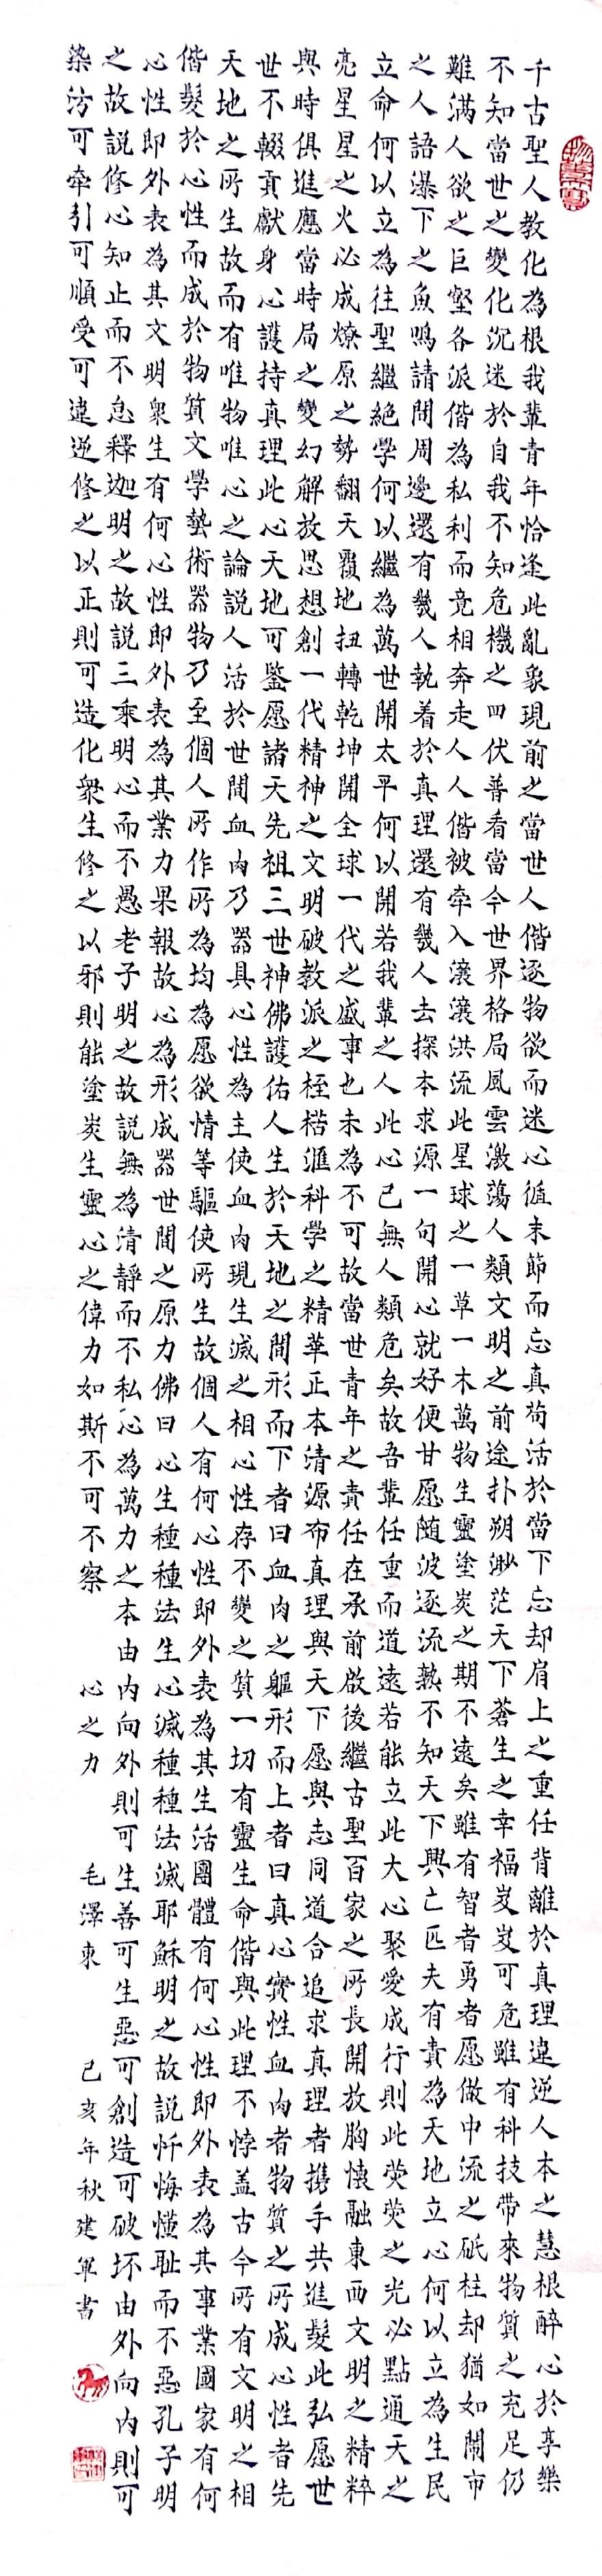 千古聖人教化為根我輩青年恰逢此亂象現前之當世人偕逐物欲而迷心循末節而忘真苟活於當下忘却肩上之重任背離於真理違逆人本之慧根醉心於享樂
不知當世之變化沉迷於自我不知危機之四伏普看當今世界格局風雲激蕩人類文明之前途扑朔渺茫天下蒼生之幸福岌岌可危雖有科技帶來物質之充足仍
難滿人欲之巨壑各派偕為私利而竞相奔走人人偕被牵入滾滾洪流此星球之一草一木萬物生靈塗炭之期不遠矣雖有智者勇者愿做中流之砥柱却猶如鬧市
之人語瀑下之魚鳴請問周邊還有幾人執着於真理還有幾人去探本求源一句開心就好便甘愿随波逐流孰不知天下興亡匹夫有責為天地立心何以立為生民
立命何以立為往聖繼絕學何以繼為萬世開太平何以開若我輩之人此心已無人類危矣故吾輩任重而道遠若能立此大心聚愛成行則此熒熒之光必點通天之
亮星星之火必成燎原之勢翻天覆地扭轉乾坤開全球一代之盛事也未為不可故當世青年之責任在承前啟後繼古聖百家之所長開放胸懷融東西文明之精粹
與時俱進應當時局之變幻解放思想創一代精神之文明破教派之桎梏滙科學之精華正本清源布真理與天下愿與志同道合追求真理者携手共進髮此弘愿世
世不輟貢獻身心護持真理此心天地可鑒愿諸天先祖三世神佛護佑人生於天地之間形而下者曰血肉之軀形而上者曰真心實性血肉者物質之所成心性者先
天地之所生故而有唯物唯心之論說人活於世間血肉乃器具心性為主使血肉現生滅之相心性存不變之質一切有靈生命偕與此理不悖盖古今所有文明之相
偕髮於心性而成於物質文學藝術器物乃至個人所作所為均為愿欲情等驅使所生故個人有何心性即外表為其生活團體有何心性即外表為其事業國家有何
心性即外表為其文明衆生有何心性即外表為其業力果報故心為形成器世間之原力佛曰心生種種法生心滅種種法滅耶穌明之故說忏悔懂耻而不惡孔子明
之故說修心知止而不怠釋迦明之故說三乘明心而不愚老子明之故說無為清靜而不私心為萬力之本由内向外則可生善可生惡可創造可破坏由外向内則可
染汚可牵引可順受可違逆修之以正則可造化衆生修之以邪則能塗炭生靈心之偉力如斯不可不察 心之力 毛澤東 己亥年秋建軍書